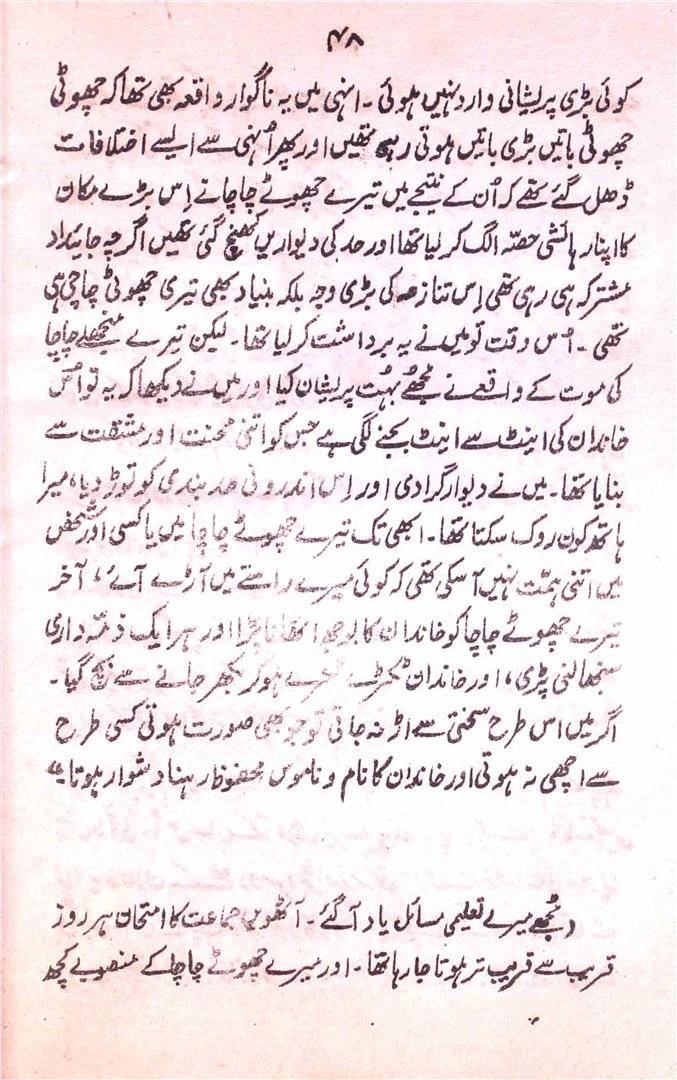 ۴۸
کوئی بڑی پریشانی وارد نہیں ہوئی ۔ انہی میں یہ ناگوار واقعہ بھی تھا کہ چھوٹی
چھوٹی باتیں بڑی باتیں ہوتی رہی تھیں اور پھر اُنہی سے ایسے اختلافات
ڈھل گئے تھے کہ اُن کے نتیجے میں تیرے چھوٹے چاچا نے اِس بڑے مکان
کا اپنا رہائشی حصّہ الگ کر لیا تھا اور حد کی دیواریں کھنچ گئی تھیں اگرچہ جائیداد
مشترکہ ہی رہی تھی اِس تنازعہ کی بڑی وجہ بلکہ بنیاد بھی تیری چھوٹی چاچی ہی
تھی ۔ اُس وقت تو میں نے یہ برداشت کر لیا تھا ۔ لیکن تیرے منجھلے چاچا
کی موت کے واقعے نے مجھے بہُت پریشان کیا اور میں نے دیکھا کہ یہ تو اُس
خاندان کی اینٹ سے اینٹ بجنے لگی ہے جس کو اتنی محنت اور مشقت سے
بنایا تھا ۔ میں نے دیوار گرا دی اور اِس اندرونی حد بندی کو توڑ دیا، میرا
ہاتھ کون روک سکتا تھا ۔ ابھی تک تیرے چھوٹے چاچا میں یا کسی اور شخص
میں اتنی ہمّت نہیں آ سکی تھی کہ کوئی میرے راستے میں آڑے آئے، آخر
تیرے چھوٹے چاچا کو خاندان کا بوجھ اٹھانا پڑا اور ہر ایک ذمّہ داری
سنبھالنی پڑی، اور خاندان ٹکڑے ٹکڑے ہو کر بکھر جانے سے بچ گیا ۔
اگر میں اس طرح سختی سے اڑ نہ جاتی تو جو بھی صورت ہوتی کسی طرح
سے اچھی نہ ہوتی اور خاندان کا نام و ناموس محفوظ رہنا دشوار ہوتا ۔"
، مُجھے میرے تعلیمی مسائل یاد آ گئے ۔ آٹھویں جماعت کا امتحان ہر روز
قریب سے قریب تر ہوتا جا رہا تھا ۔ اور میرے چھوٹے چاچا کے منصوبے کچھ